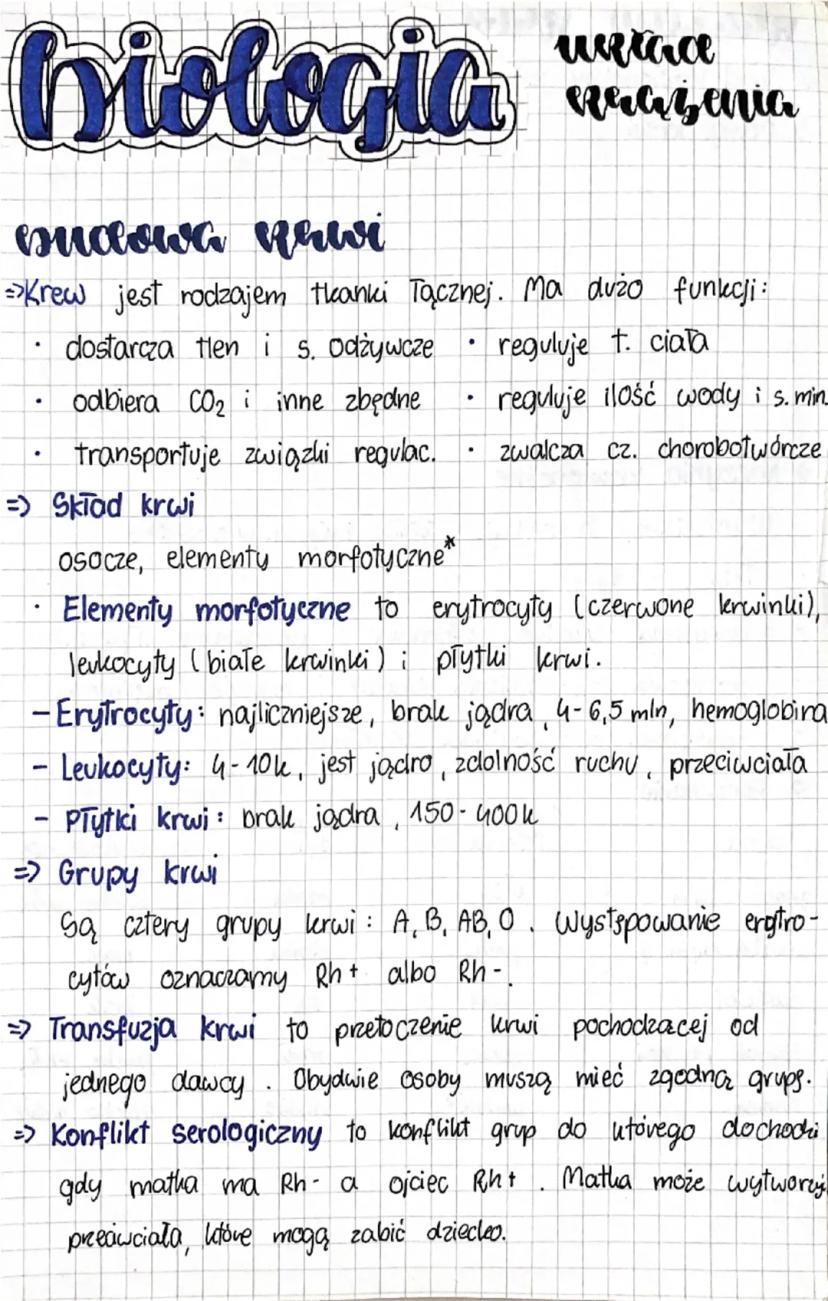 biologia
układ
krążenia
budowa krwi
=> Krew jest rodzajem tkanki łącznej. Ma dużo funkcji:
• dostarcza tlen i s. odżywcze • reguluje t. ciała
• odbiera CO2 i inne zbędne • reguluje ilość wody i s. min
• transportuje związki regulac. • zwalcza cz. chorobotwórcze
=> Skład krwi
osocze, elementy morfotyczne*
• Elementy morfotyczne to erytrocyty (czerwone krwinki),
leukocyty (białe krwinki) i płytki krwi.
- Erytrocyty: najliczniejsze, brak jądra, 4-6,5 mln, hemoglobina
- Leukocyty: 4-10k, jest jądro, zdolność ruchu, przeciwciała
- Płytki krwi: brak jądra, 150-400k
=> Grupy krwi
Są cztery grupy krwi: A, B, AB, O. Występowanie erytro-
cytów oznaczamy Rh+ albo Rh-.
=> Transfuzja krwi to przetoczenie krwi pochodzącej od
jednego dawcy. Obydwie osoby muszą mieć zgodną grupę.
=> Konflikt serologiczny to konflikt grup do którego dochodzi
gdy matka ma Rh- a ojciec Rh+. Matka może wytworzyć
przeciwciała, które mogą zabić dziecko.